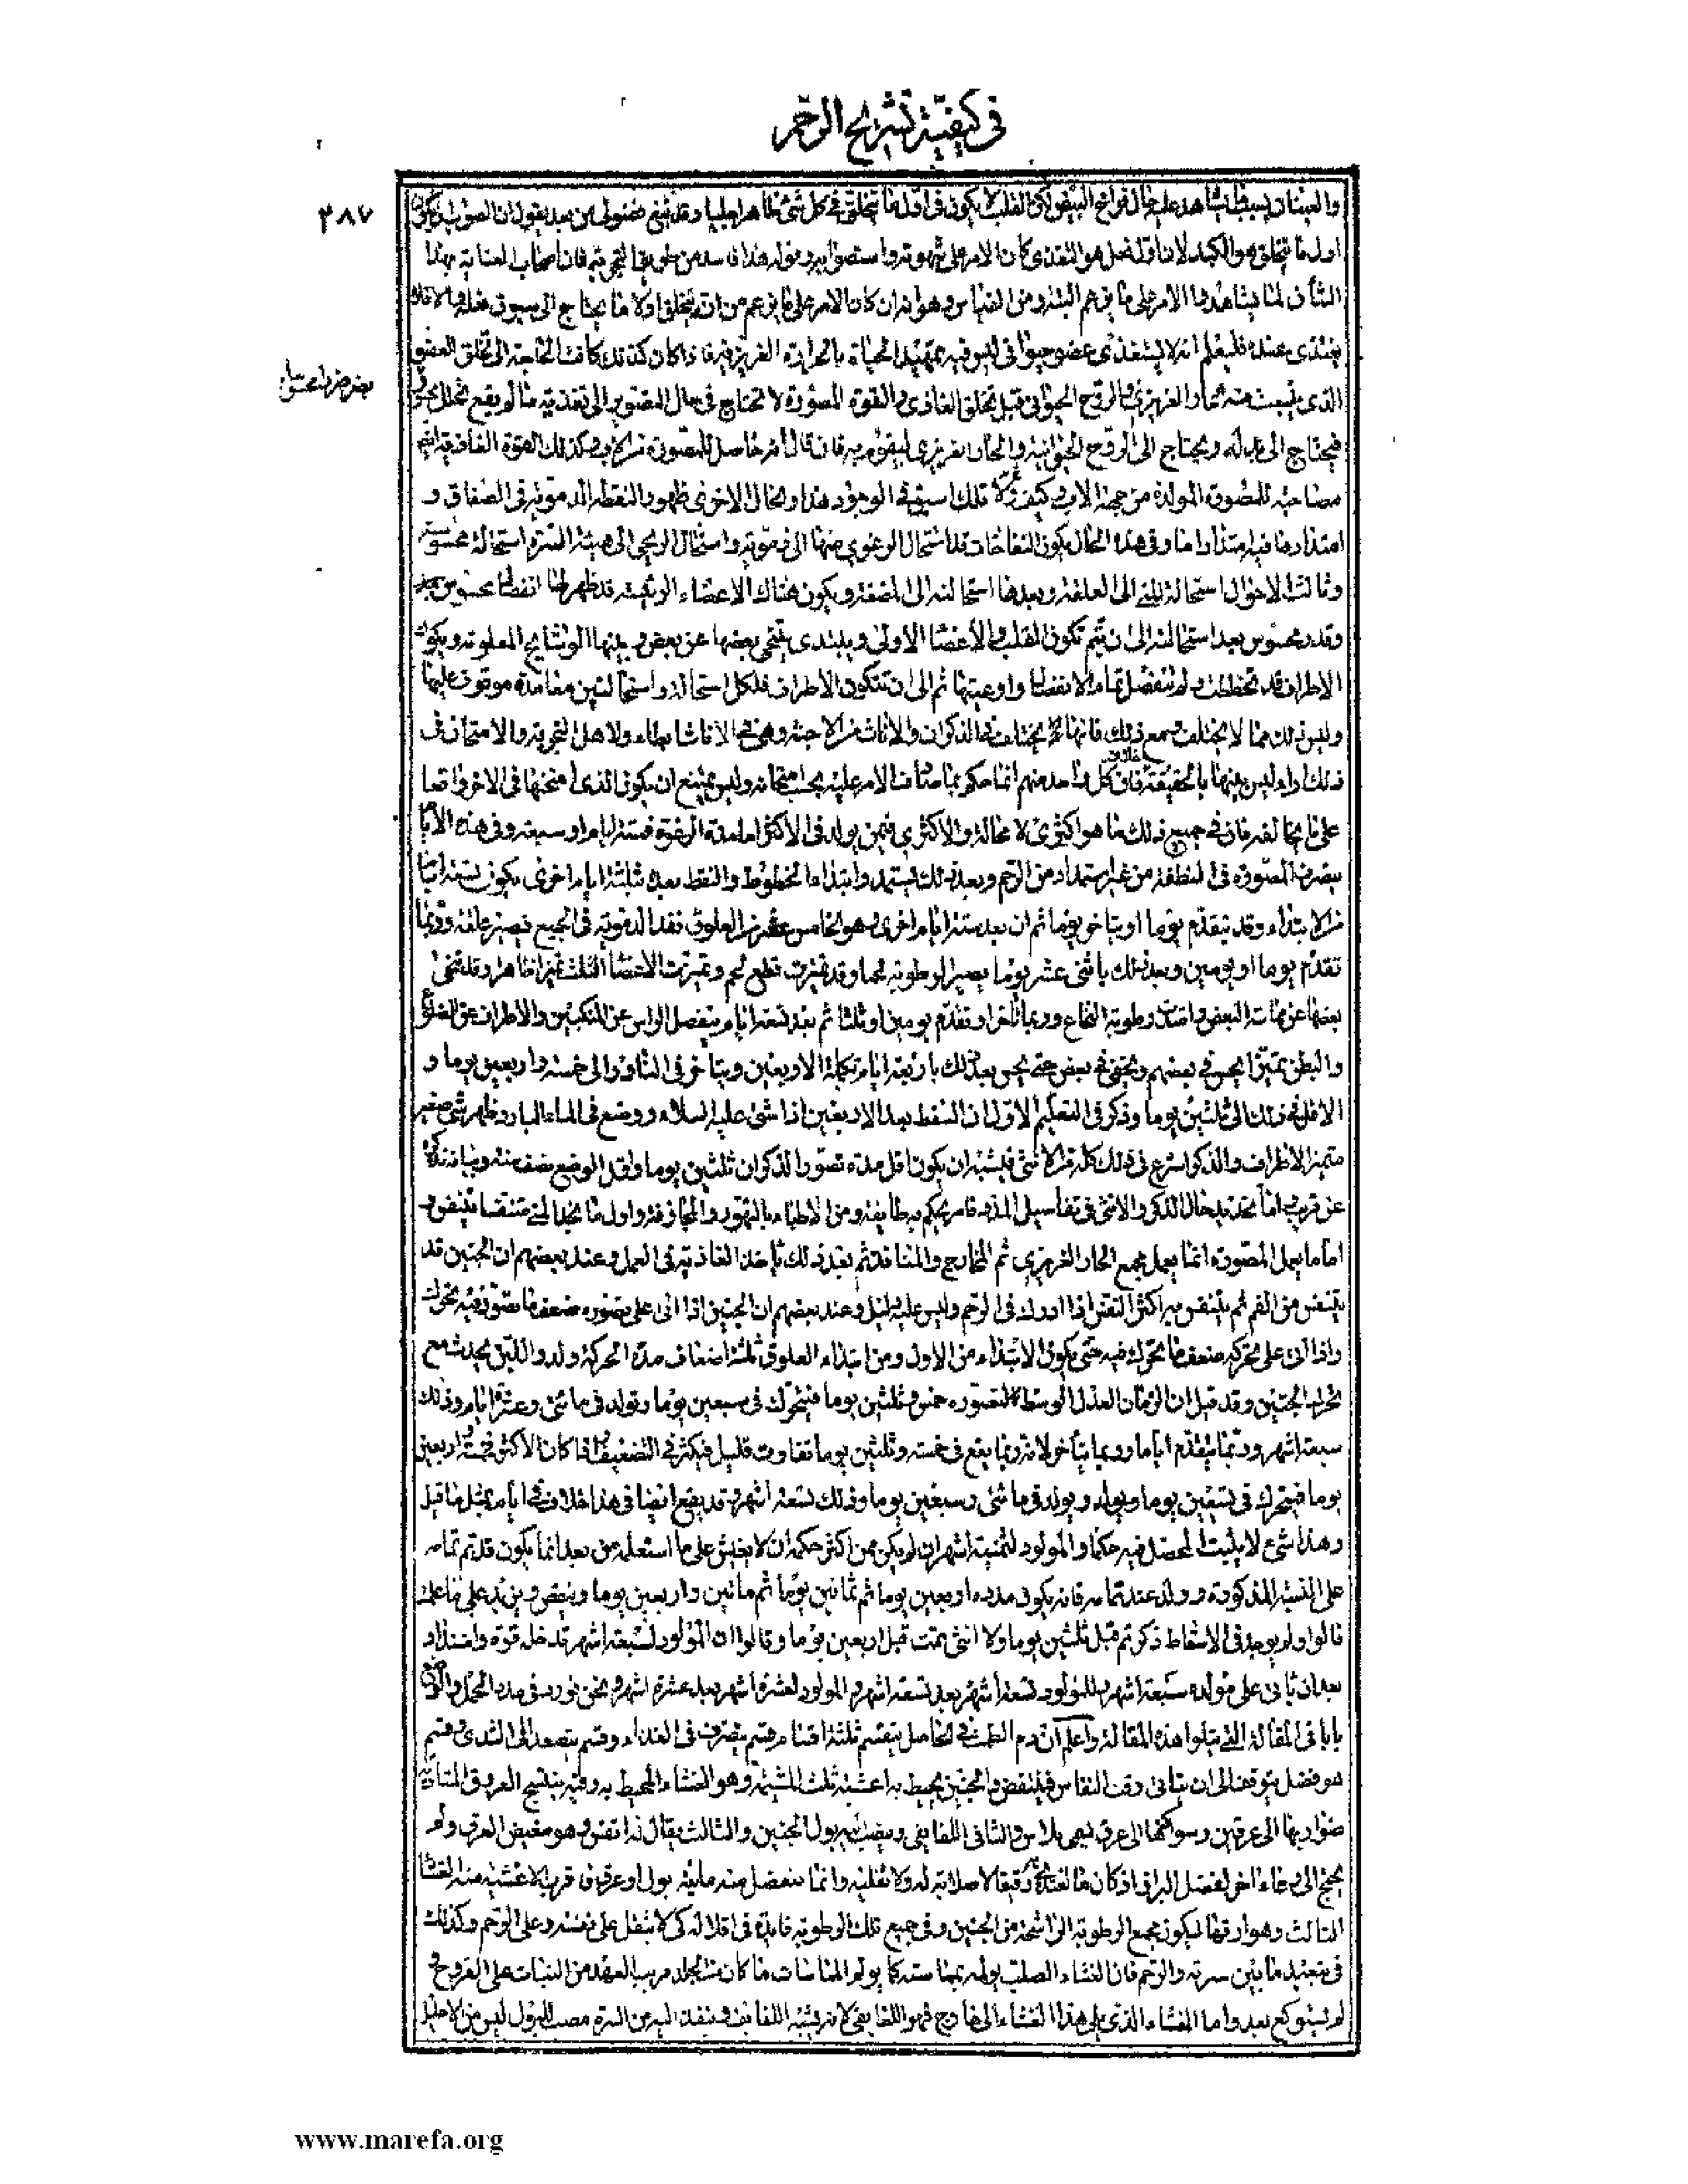 في كيفية تشريح الرحم
٣٨٧
اول ما يتخلق هو الكبد لان اول فعل هو التغذي كان الامر على شهوته واستصوابه وقوله هذا فاسد من طريق التجربة فان اصحاب العناية بهذا
الشأن لم يشاهدوا الامر على ما يزعم البتة ومن القياس وهو انه ان كان الامر على ما يزعم من انه يتخلق اولا ما يحتاج الى سبوق فعله
يغتذي عنده فليعلم انه لا يستغذي عضو حيواني ليس فيه تمهيد الحياة بالحرارة الغريزية فاذا كان كذلك كانت الحاجة الى تخلق العضو
الذي ينبعث منه الحار الغريزي والروح الحيواني قبل تخلق الغاذي والقوة المصورة لا تحتاج في حال التصوير الى تغذية ما لم يقع تحلل محسوس
فيحتاج الى بدله ويحتاج الى الروح الحيوانية والحار الغريزي ليقوم به فان قال انه حاصل للمصورة من الاب فكذلك القوة الغاذية
مصاحبة للمصورة المولدة من جهة الاب وكيف تلك اسبق في الوجود هذا والحال الاخرى ظهور النقطة الدموية في الصفاق و
امتدادها فيه امتدادا ما وفي هذه الحال يكون النفاخات قد استحال الرغوي منها الى دموية واستحال الريحي الى هيئة السرة استحالة محسوسة
وثالث الاحوال استحالة المني الى العلقة وبعدها استحالته الى المضغة ويكون هناك الاعضاء الرئيسة قد ظهر لها انفصال محسوس
وقدر محسوس بعد استحالته الى ان يتم تكون القلب والاعضاء الاولى ويبتدي يتنحى بعضها عن بعض
الاطراف قد تخططت ولم تنفصل تمام الانفصال واوعيتها ثم الى ان تتكون الاطراف فلكل استحالة او استحالتين مدة موقوف عليها
وليس ذلك مما لا يختلف ومع ذلك فانها تختلف في الذكران والاناث من الاجنة وهي في الاناث ابطاء ولاهل التجربة والامتحان في
ذلك اراء ليس بينها بالحقيقة خلاف فان كل واحد منهم انما حكم بما صادف الامر عليه بحسب امتحانه وليس يمتنع ان يكون الذي امتحنه الاخر واقعا
على ما يخالفه فان في جميع ذلك ما هو اكثري لا محالة والاكثري فيمن يولد في الاكثر اما مدة الرغوة فستة ايام او سبعة وفي هذه الايام
تتصرف المصورة في النطفة من غير استمداد من الرحم وبعد ذلك تستمد وابتداء الخطوط والنقط بعد ثلثة ايام اخرى يكون تسعة ايام
من الابتداء وقد يتقدم يوما او يتاخر يوما ثم ان بعد ستة ايام اخرى وهو الخامس عشر من العلوق تنفذ الدموية في الجميع فيصير علقة وربما
تقدم يوما او يومين وبعد ذلك باثني عشر يوما يصير الرطوبة لحما وقد تميزت قطع لحم وتميزت الاعضاء الثلث تميزا ظاهرا وقد تنحى
بعضها عن مماسة البعض وامتدت رطوبة النخاع وربما تأخر او تقدم يومين او ثلثا ثم بعد تسعة ايام ينفصل الراس عن المنكبين والاطراف عن الضلوع
والبطن تميزا يحس في بعضهم ويخفى في بعض حتى يحس بعد ذلك باربعة ايام تكملة الاربعين ويتأخر في النادر الى خمسة واربعين يوما و
الاقل في ذلك الى ثلثين يوما وذكر في التعليم الاول ان السقط بعد الاربعين اذا شق عليه السلاء ووضع في الماء البارد ظهر شئ صغير
متميز الاطراف والذكر اسرع في ذلك كله من الانثى فيشبه ان يكون اقل مدة تصور الذكران ثلثين يوما واقل الوضع نصف سنة
عن قريب اما تحديد حال الذكر والانثى في تفاصيل المدد فامر يحكم به طايفة من الاطباء بالتهور والمجازفة واول ما يجد المني متنفسا يتنفس
اما ما يعمل المصورة انما يعمل مجمع الحار الغريزي ثم المخارج والمنافذ ثم بعد ذلك تأخذ الغاذية في العمل وعند بعضهم ان الجنين قد
يتنفس من الفم ثم يتنفس به اكثر التنفس اذا ادرك في الرحم وليس عليه دليل وعند بعضهم ان الجنين اذا اتى على تصوره ضعف ما تصور فيه تحرك
واذا اتى على تحركه ضعف ما تحرك فيه حتى يكون الابتداء من الاول ومن ابتداء العلوق ثلثة اضعاف مدة الحركة ولد واللبن يحدث مع
تحرك الجنين وقد قيل ان الزمان العدل الوسط لتصوره خمس وثلثين يوما فيتحرك في سبعين يوما ويولد في مائتي وعشرة ايام وذلك
سبعة اشهر وربما يتقدم اياما وربما يتأخر لانه ربما يقع في خمسة وثلثين يوما تفاوت قليل فيكثر في التضعيف واذا كان الاكثر في خمسة واربعين
يوما فيتحرك في تسعين يوما ويولد في مائتي وسبعين يوما وذلك تسعة اشهر وقد يقع ايضا في هذا اختلاف في ايام بمثل ما قيل
وهذا شئ لا يثبت المحصل فيه حكما والمولود لثمانية اشهر ان لم يكن ممن اكثر حكمه ان لا يعيش على ما ستعلمه من بعد انما يكون قد تم تمامه
على النسبة المذكورة وولد عند تمامه فانه يكون مدده اربعين يوما ثم ثمانين يوما ثم مائتين واربعين يوما وينقص ويزيد على ما علمت
قالوا ولم يوجد في الاسقاط ذكر تم قبل ثلثين يوما ولا انثى تمت قبل اربعين يوما وقالوا ان المولود لسبعة اشهر تدخله قوة واشتداد
بعد ان ياتي على مولده سبعة اشهر والمولود لتسعة اشهر بعد تسعة اشهر والمولود لعشرة اشهر بعد عشرة اشهر ونحن نورد في مدد الحمل والوضع
بابا في المقالة التي تتلوا هذه المقالة واعلم ان دم الطمث في الحامل ينقسم ثلثة اقسام قسم ينصرف في الغذاء وقسم يصعد الى الثدي وقسم
هو فضل يتوقف الى ان يتاتى وقت النفاس فينتفض والجنين يحيط به اغشية ثلث المشيمة وهو الغشاء المحيط به وفيه ينتسج العروق المتادية
ضواربها الى عرقين وسواكنها الى عرقين والثاني اللفايفي وينصب اليه بول الجنين والثالث يقال له انفس وهو مغيض العرق ولم
يحتج الى وعاء اخر لفضل البراز اذ كان ما يغتذيه رقيقا لا صلابة له ولا ثقل وانما تنفصل منه مائية بول او عرق واقرب الاغشية منه الغشاء
الثالث وهو ارقها ليكون مجمع الرطوبة الراشحة من الجنين وفي جميع تلك الرطوبة فايدة في اقلاله كي لا يثقل على نفسه وعلى الرحم وكذلك
في تبعيد ما بين سرته والرحم فان الغشاء الصلب يولمه بمماسته كما يولم المماسات ما كان من الجلد قريب العهد من النبات على القروح و
لم يستوكع بعد واما الغشاء الذي يلي هذا الغشاء الى خارج فهو اللفايفي لانه يشبه اللفايف وينفذ اليه من السرة مصب للبول ليس من الاحليل
www.marefa.org